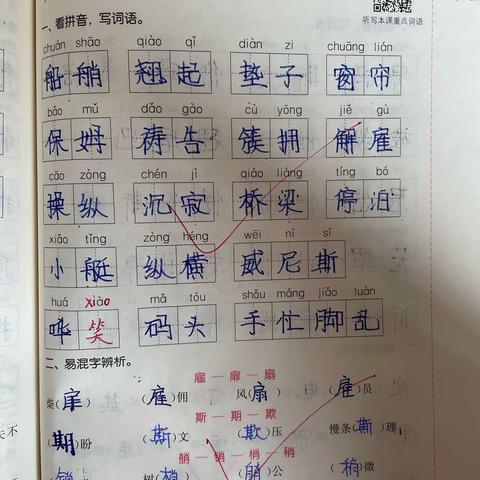 听写本课重点词语
一、看拼音,写词语。
chuán shāo qiào qǐ diàn zi chuāng lián
船艄 翘起 垫子 窗帘
bǎo mǔ dǎo gào cù yōng jiě gù
保姆 祷告 簇拥 解雇
cāo zòng chén jì qiáo liáng tíng bó
操纵 沉寂 桥梁 停泊
xiǎo tǐng zòng héng wēi ní sī
小艇 纵横 威尼斯
huá xiào mǎ tóu shǒu máng jiǎo luàn
哗笑 码头 手忙脚乱
二、易混字辨析。
雇—扉—扇
柴(扉) (雇)佣 风(扇) (雇)员
斯—期—欺
(期)盼 (斯)文 (欺)压 慢条(斯)理
艄—销—梢—稍
树(梢) (艄)公 (稍)微